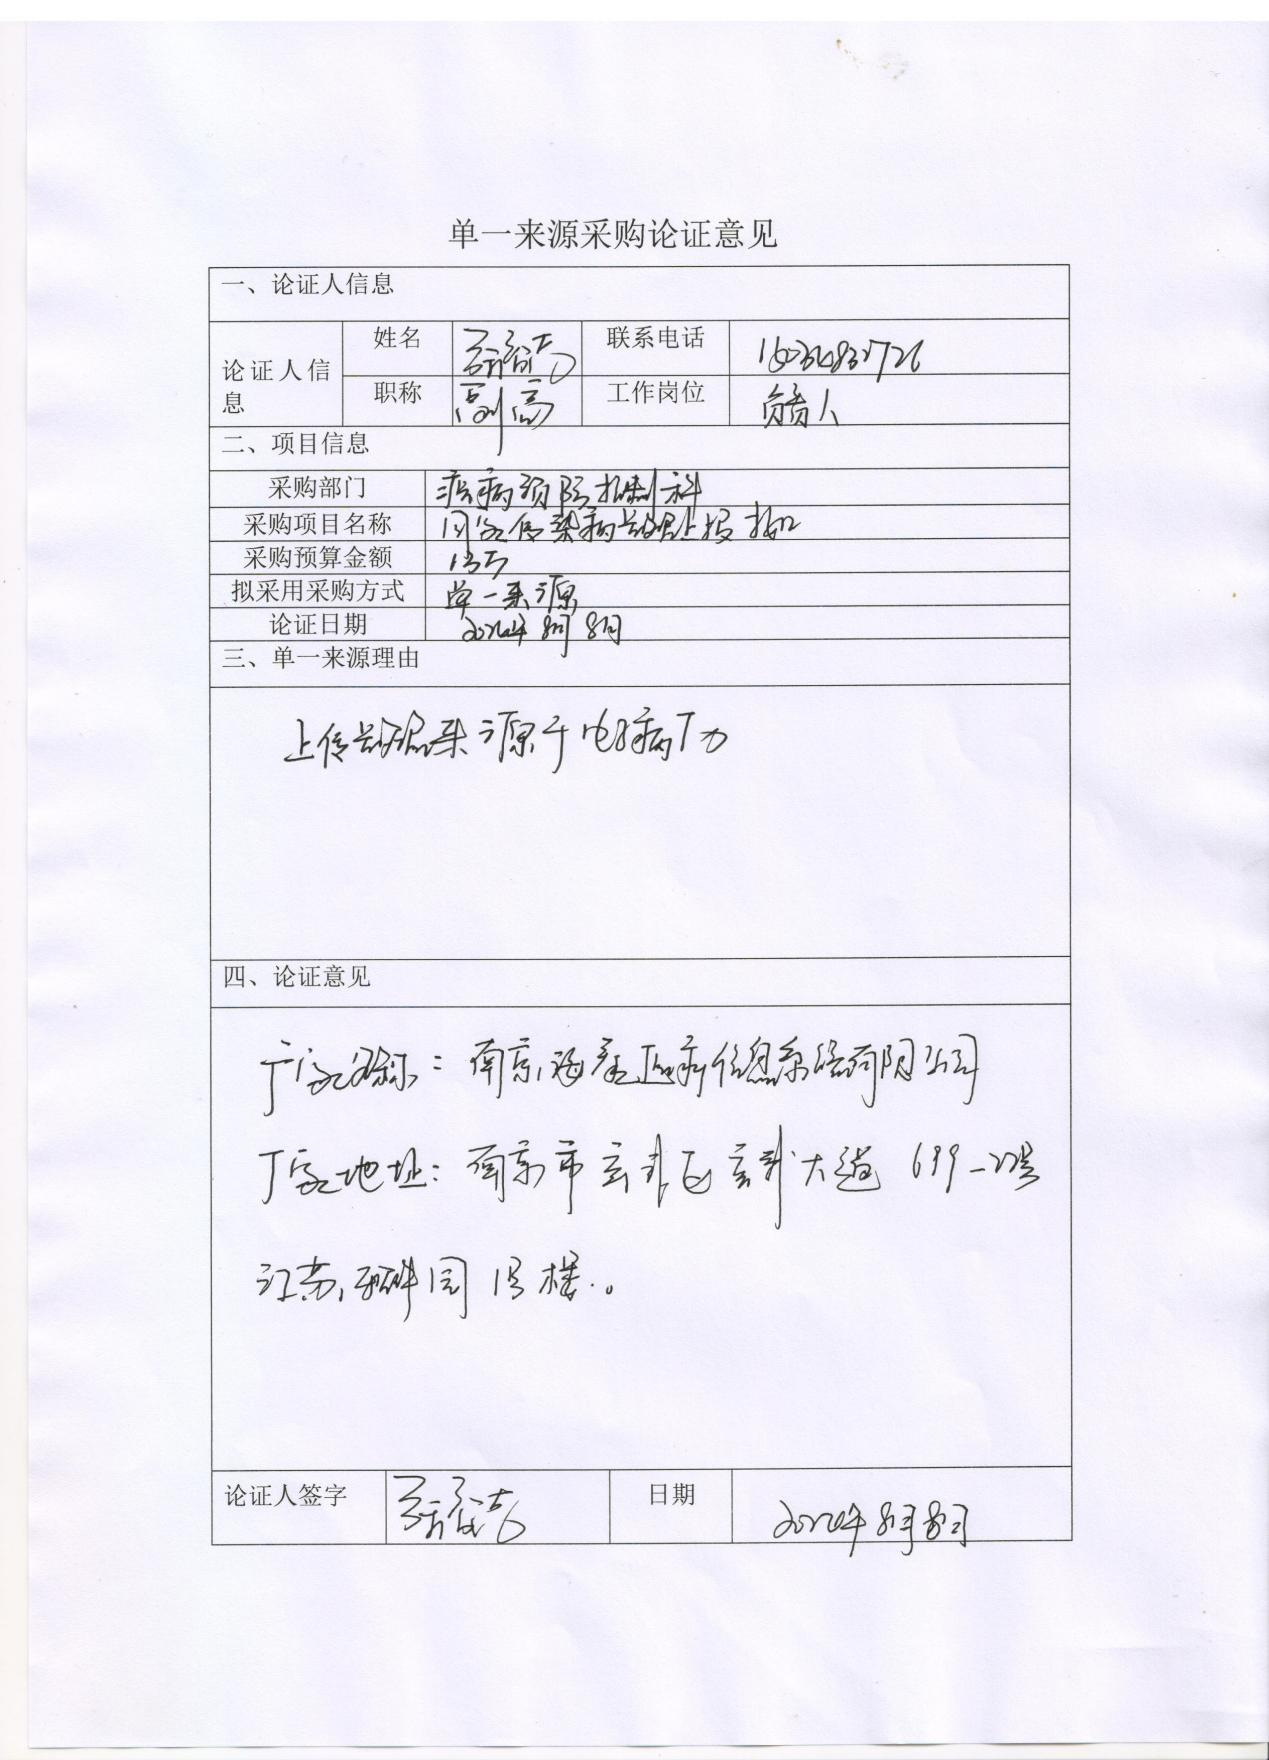 单一来源采购论证意见
一、论证人信息
论证人信息
姓名
联系电话
职称 副高 工作岗位 负责人
二、项目信息
采购部门 疾病预防控制科
采购项目名称 国家传染病数据上报接口
采购预算金额 13万
拟采用采购方式 单一来源
论证日期 2024年8月8日
三、单一来源理由
上传数据来源于电子病历
四、论证意见
厂家名称：南京海泰医疗信息系统有限公司
厂家地址：南京市玄武区玄武大道699-22号
江苏软件园18号楼。
论证人签字
日期 2024年8月8日